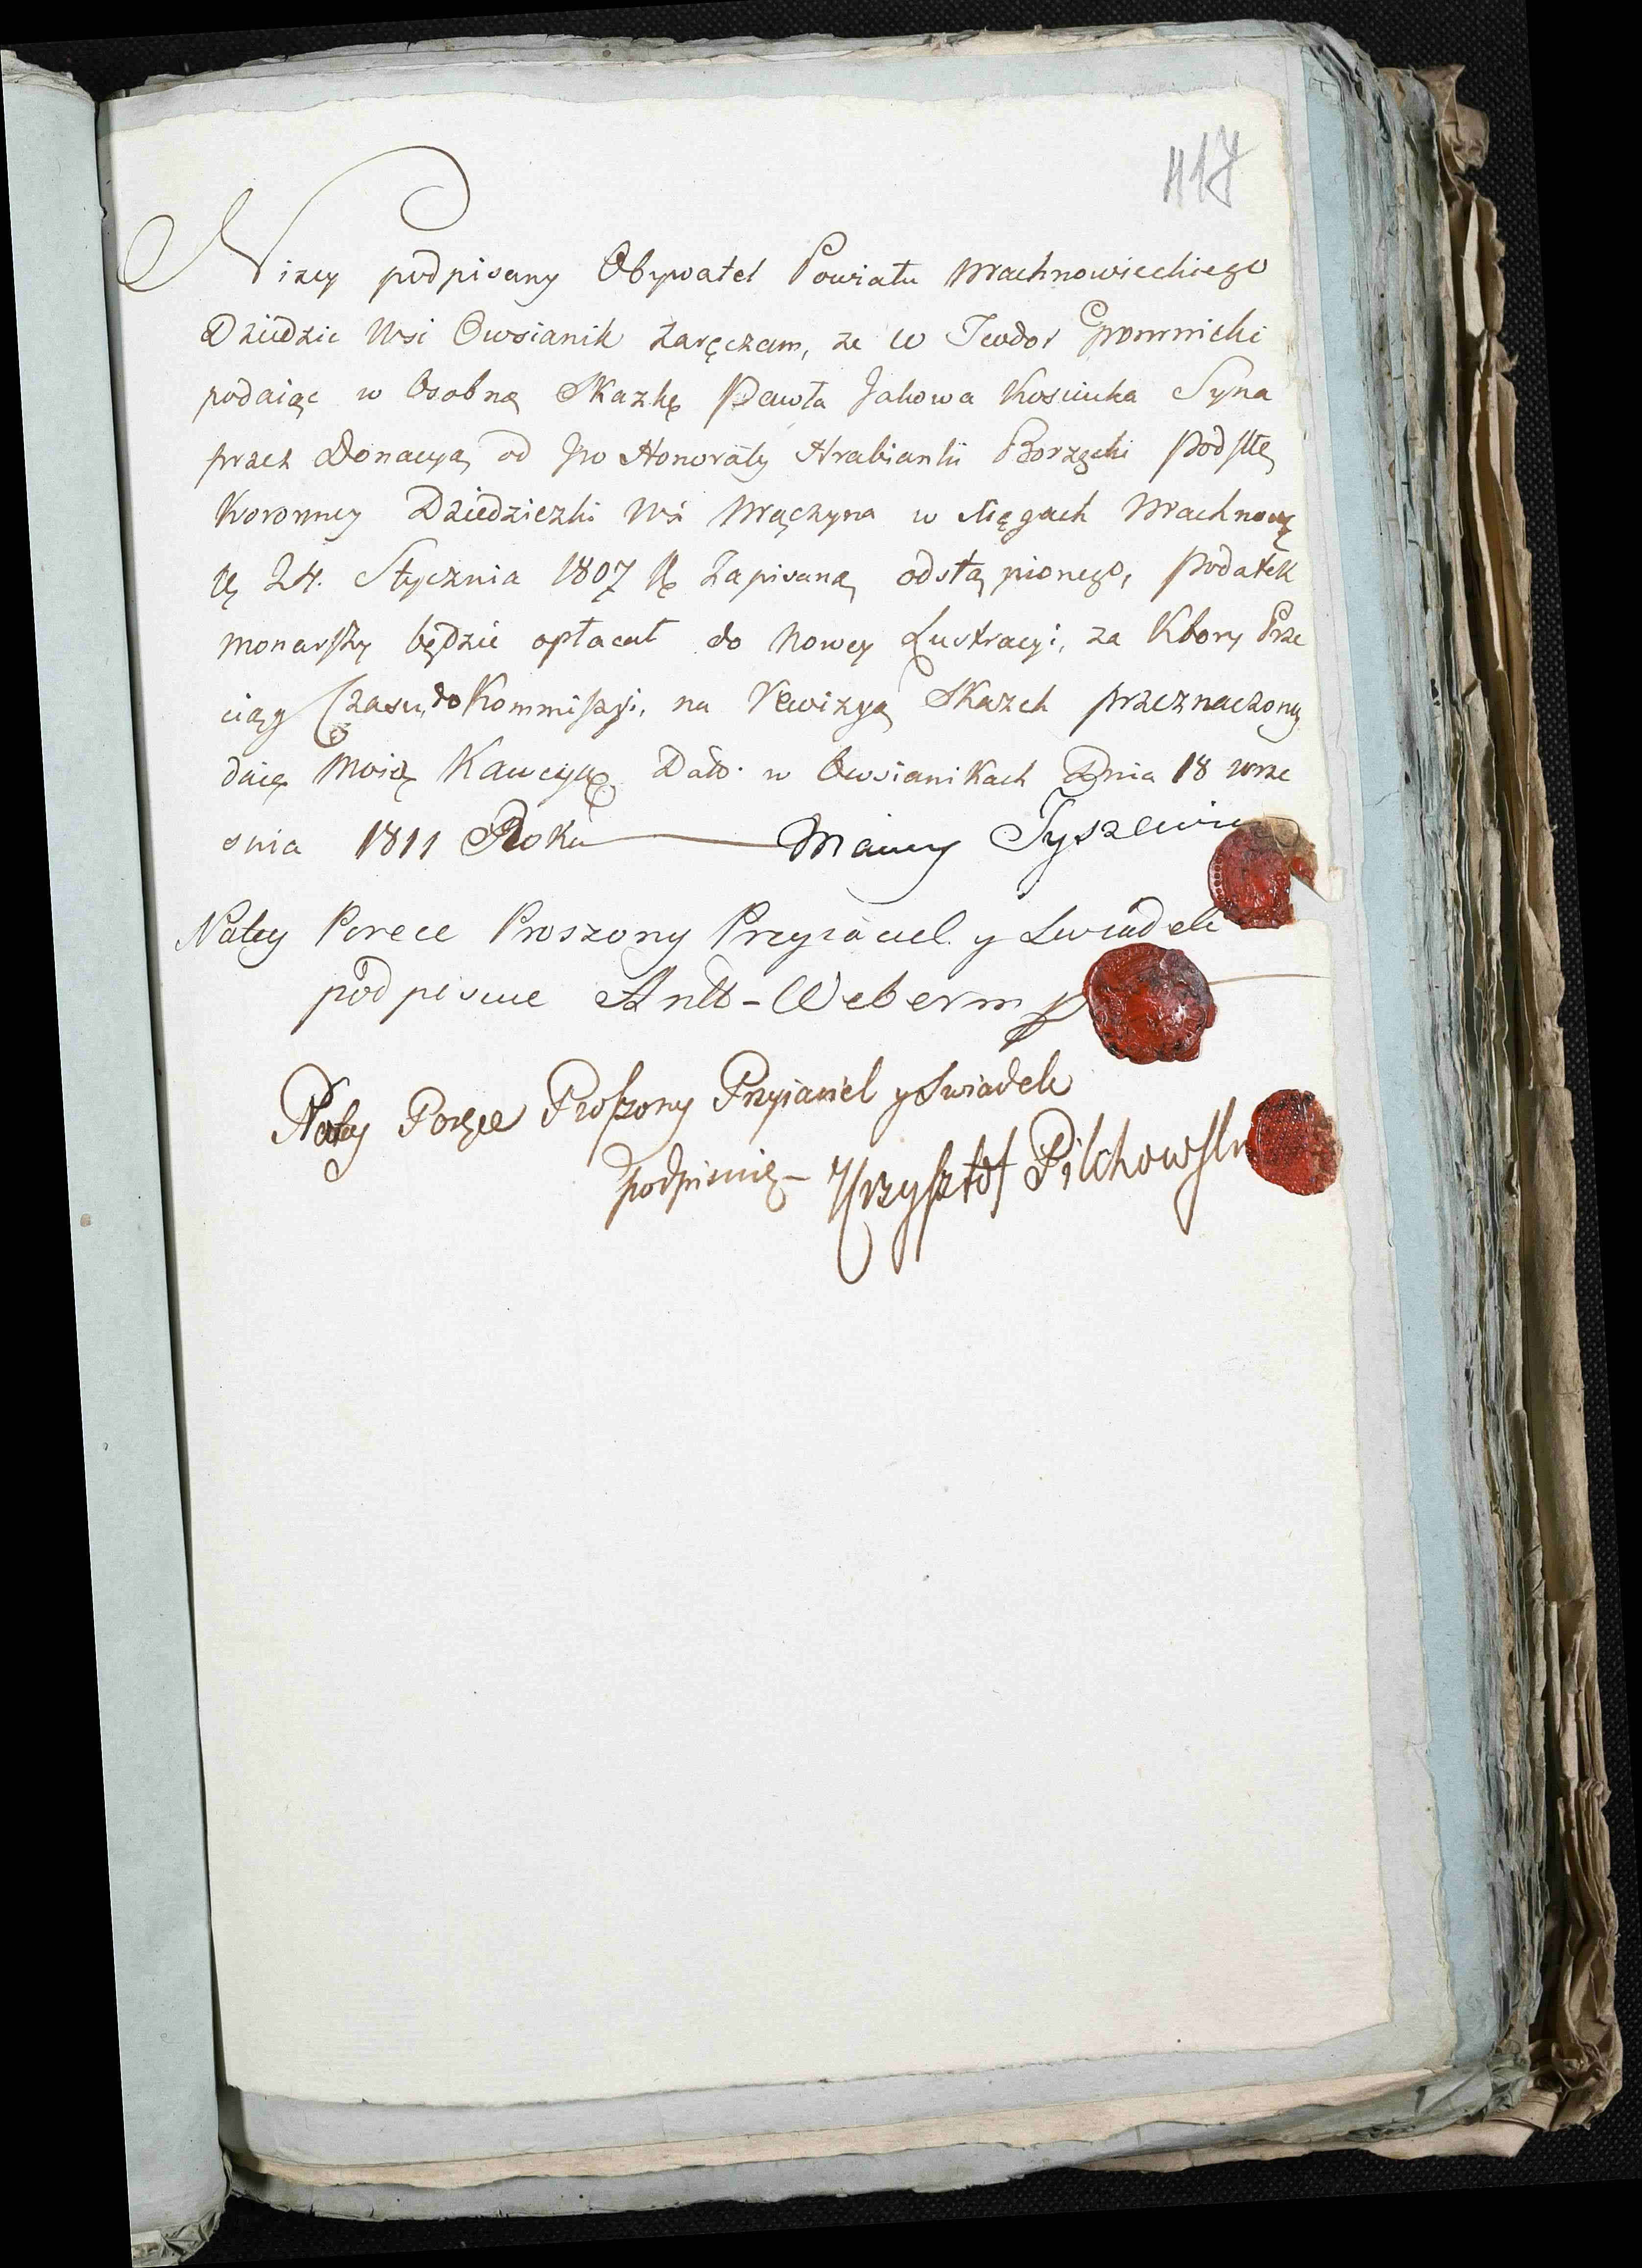 417
Niżey podpisany Obywatel Powiatu Machnowieckiego
Dziedzic Wsi Owsianik zaręczam, ze W Teodor
podaiąc w Osobną Skazkę Pawła Jakowa Kosiuka Syna
przez Donacyą od Honoraty Hrabianki Borzęcki
Koronney Dziedziczki Wsi Mączyna w Machnow
24. Stycznia 1807 Zapisaną odstąpionego, Podatek
monarszy będzie opłacał do Nowey Lustracyi, za Ktory Prze
ciąg Czasu, do Kommissyi, na Rewizyą Skazek przeznaczoney
daię Moią Kawcyą Dato. w Owsianikach Dnia 18 wrze
snia 1811 Roku Maury Tyszkiewicz
Natey Porece Proszony Przyiaciel y Swiadek
podpisuie Ant - Weber mp
Natey Poręce Proszony Przyiaciel y Swiadek
podpisuię - Krzysztof Pilchowski